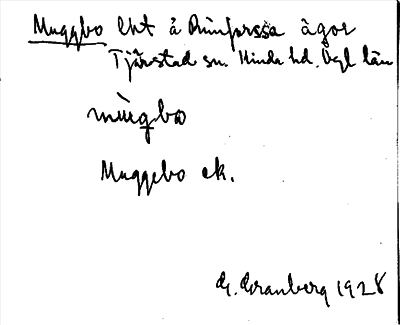 Muggbo lht å Rimforssa ägor
Tjärstad sn. Kinda hd. Ögl län
mùgbω
Muggebo ek.
G. Granberg 1928